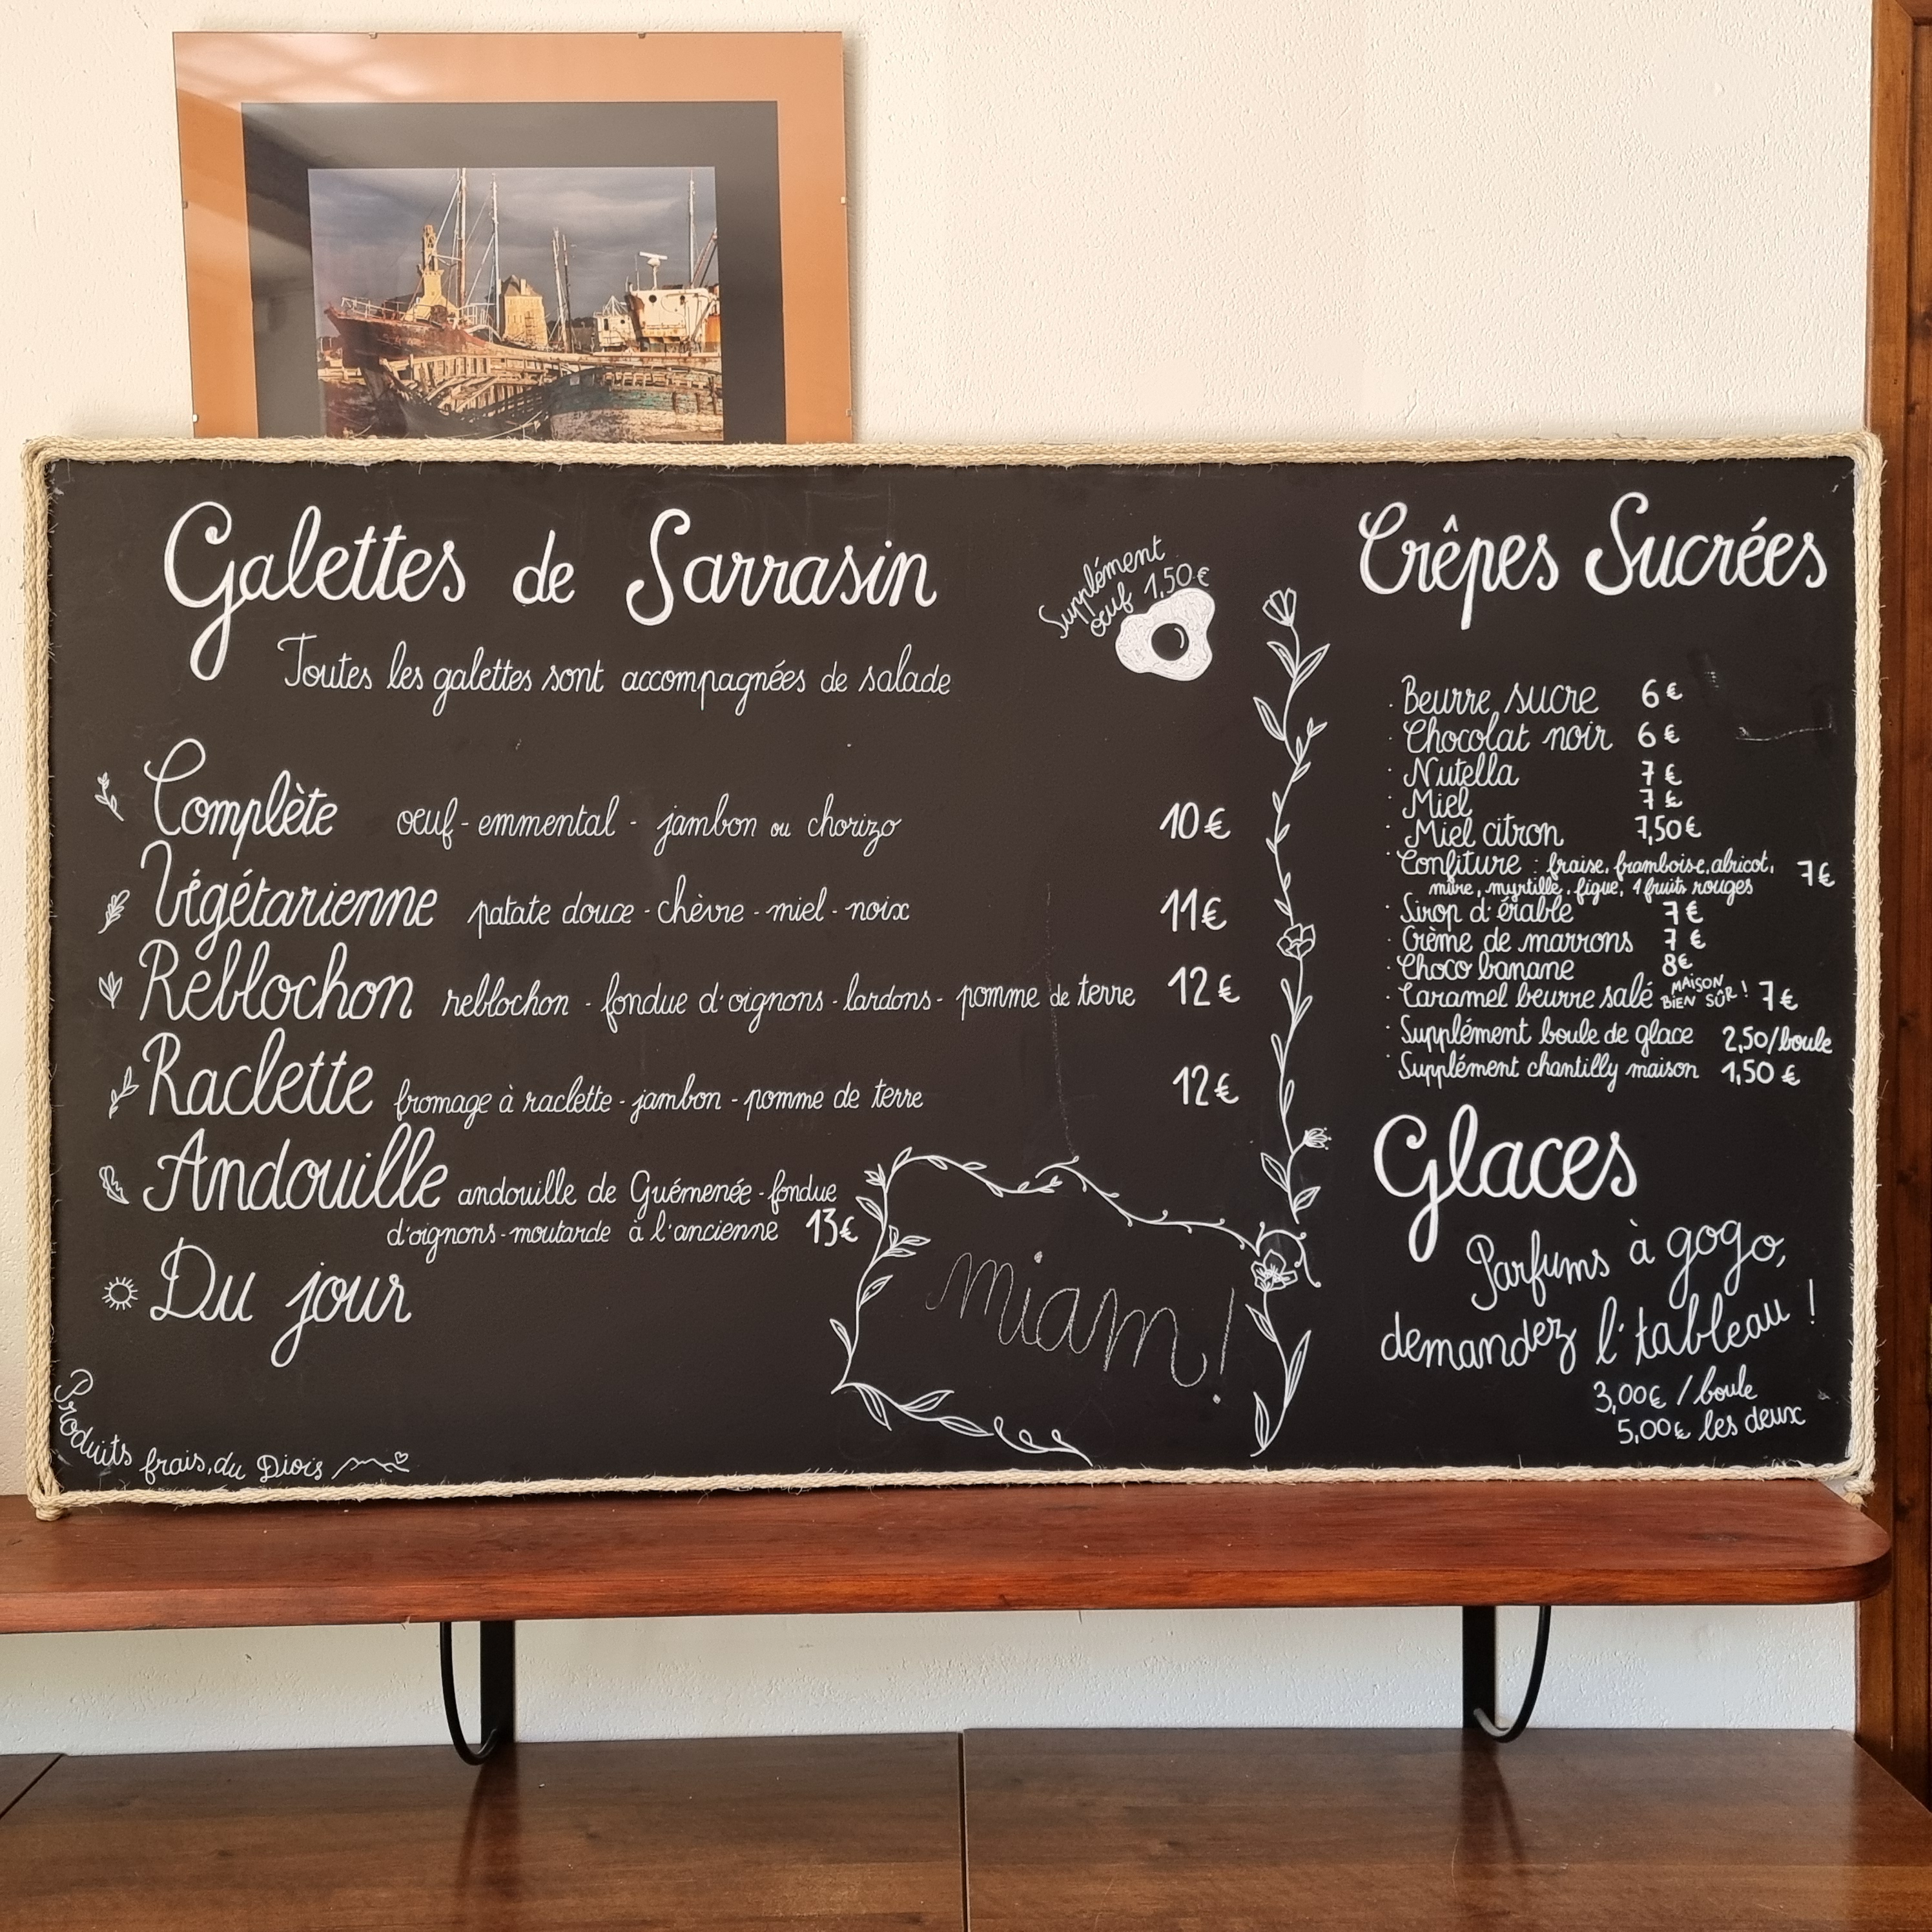 Galettes de Sarrasin
Toutes les galettes sont accompagnées de salade
Supplément
œuf 1,50€
Complète oeuf - emmental - jambon ou chorizo 10€
Végétarienne patate douce - chèvre - miel - noix 11€
Reblochon reblochon - fondue d'oignons - lardons - pomme de terre 12€
Raclette fromage à raclette - jambon - pomme de terre 12€
Andouille andouille de Guémenée - fondue
d'oignons - moutarde à l'ancienne 13€
Du jour
miam!
Produits frais, du Diois
Crêpes Sucrées
· Beurre sucre 6€
· Chocolat noir 6€
· Nutella 7€
· Miel 7€
· Miel citron 7,50€
· Confiture : fraise, framboise, abricot,
mûre, myrtille, figue, 4 fruits rouges 7€
· Sirop d'érable 7€
· Crème de marrons 7€
· Choco banane 8€
· Caramel beurre salé MAISON BIEN SÛR ! 7€
· Supplément boule de glace 2,50/boule
· Supplément chantilly maison 1,50 €
Glaces
Parfums à gogo,
demandez l'tableau !
3,00€ / boule
5,00€ les deux